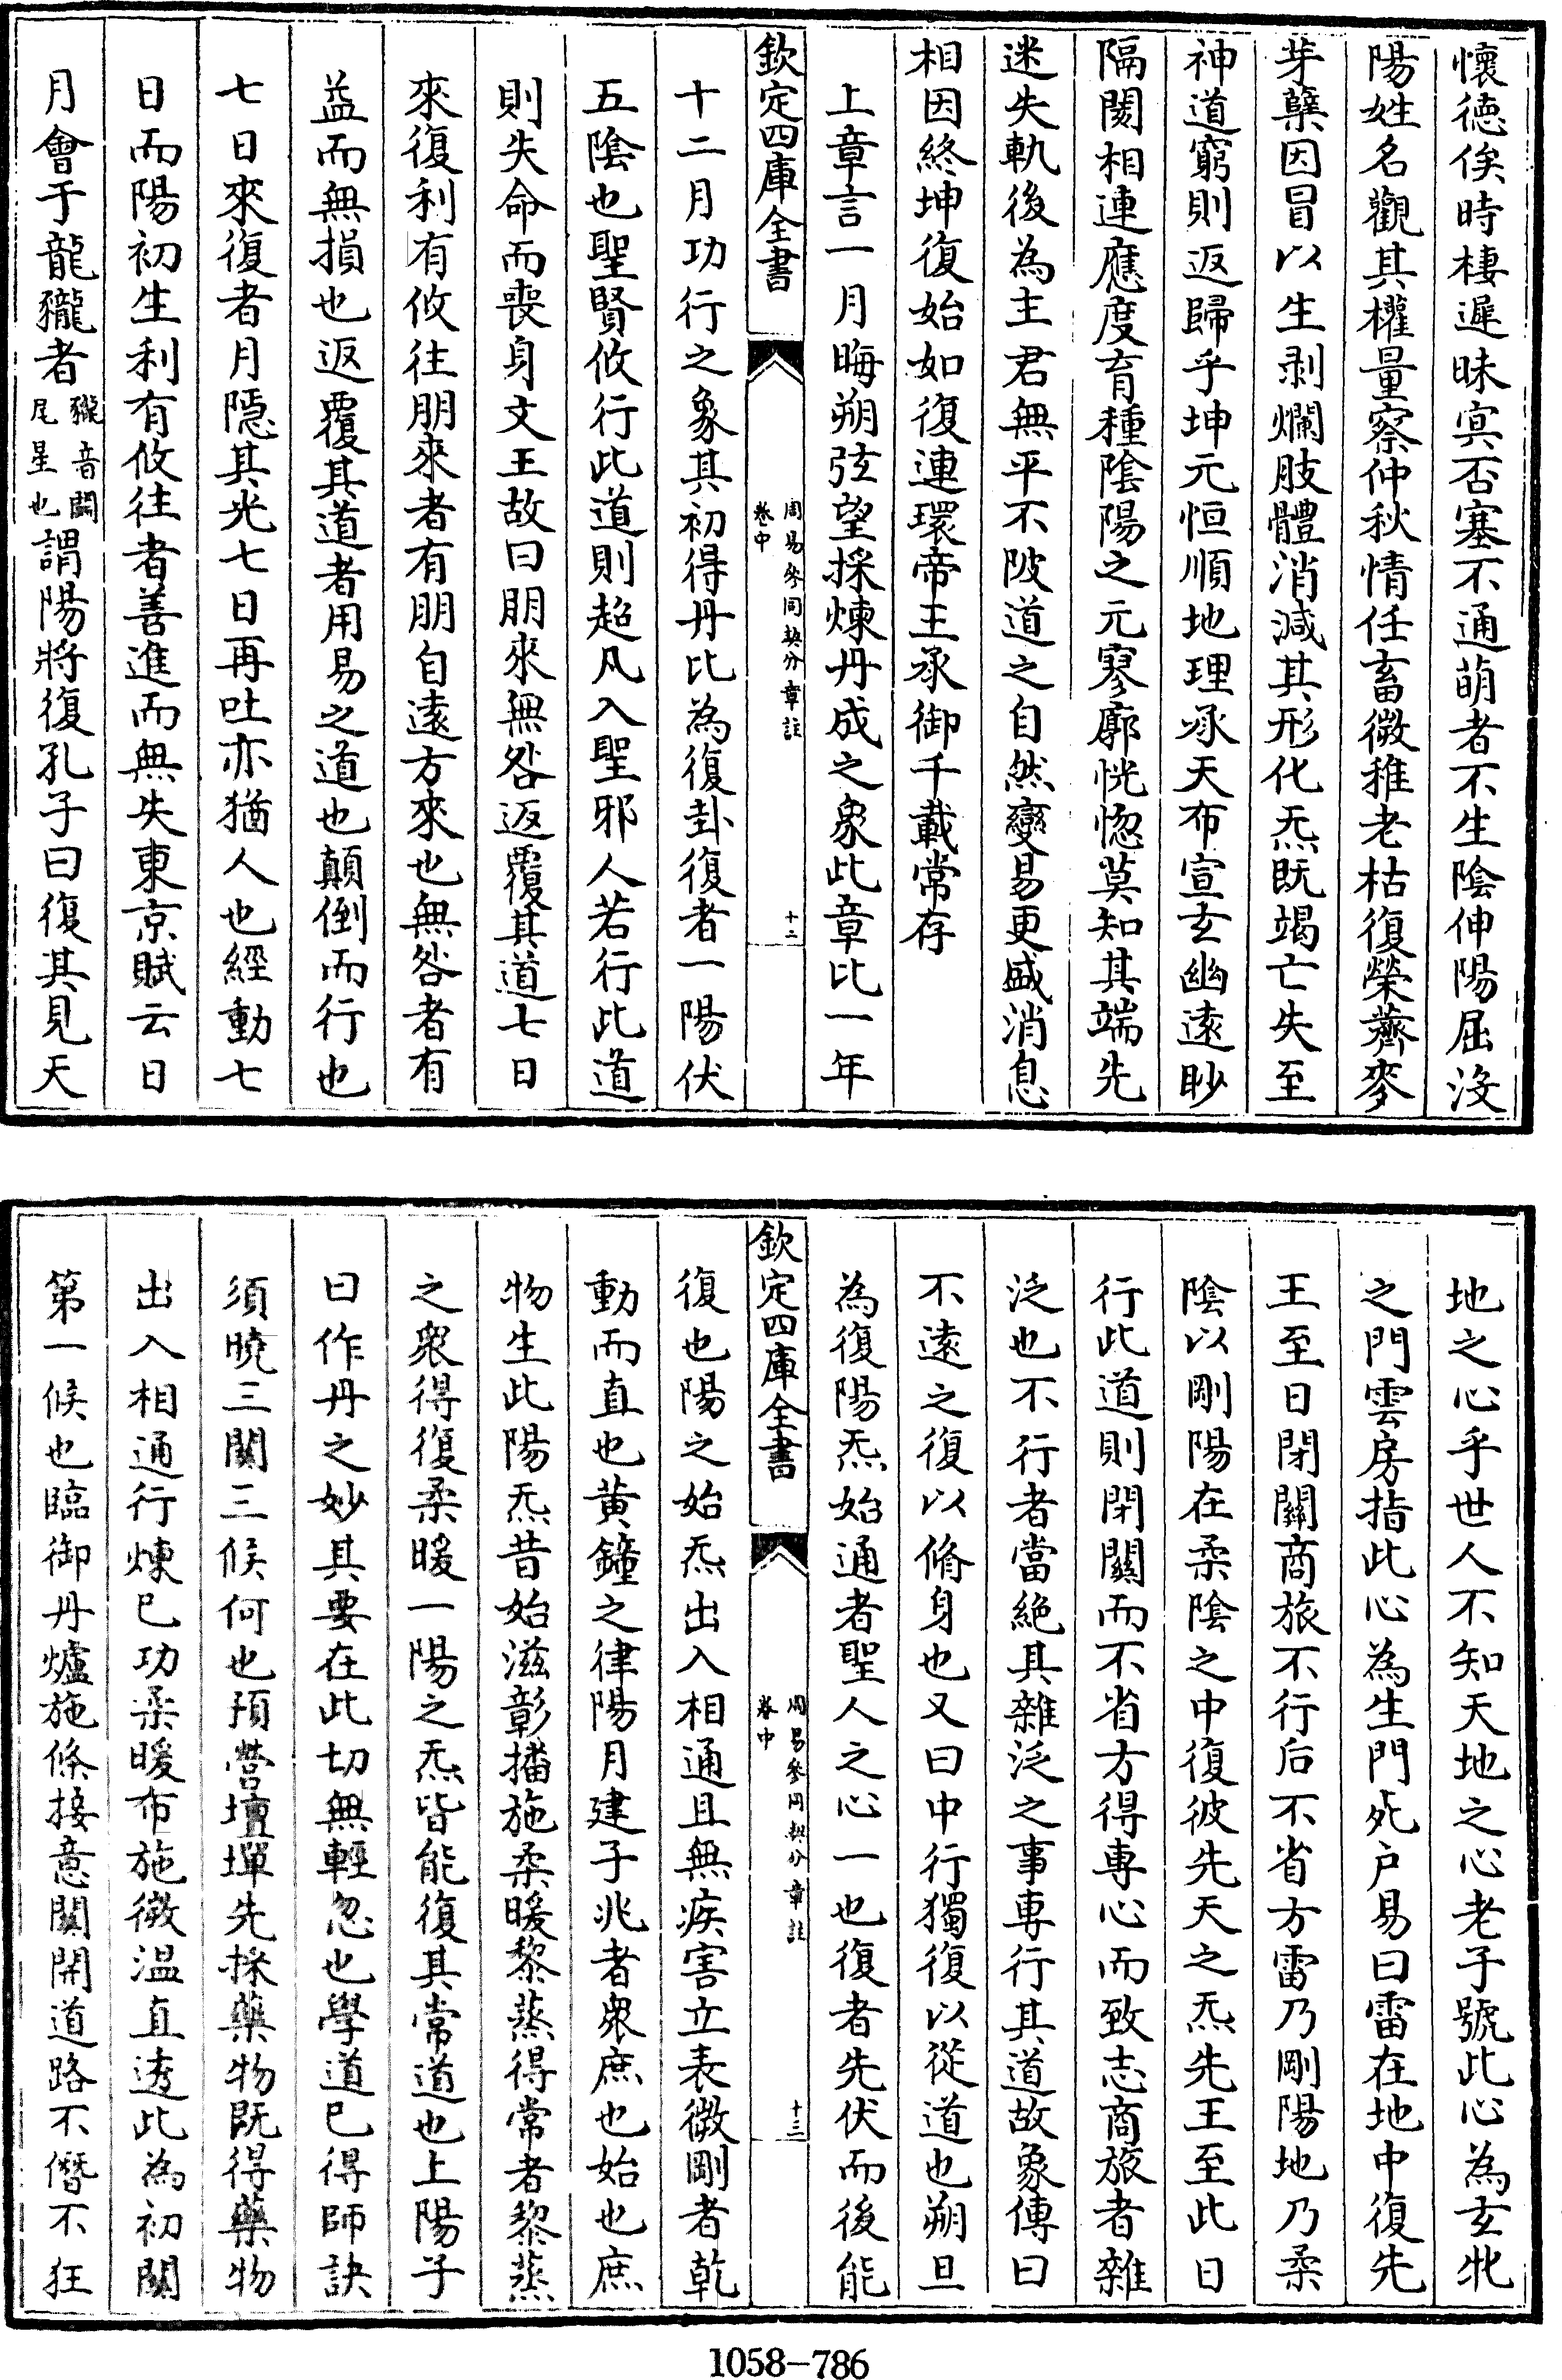 懷德俟時棲遲昧㝠否塞不通萌者不生陰伸陽屈没
陽姓名觀其權量察仲秋情任畜微稚老枯復榮薺麥
芽蘖因冒以生剥爛肢體消減其形化炁既竭亡失至
神道窮則返歸乎坤元恒順地理承天布宣玄幽遠眇
隔閡相連應度育種陰陽之元寥廓恍惚莫知其端先
迷失軌後為主君無平不陂道之自然變易更盛消息
相因終坤復始如復連環帝王承御千載常存
上章言一月晦朔弦望採煉丹成之象此章比一年
欽定四庫全書
周易參同契分章註
卷中
十二
十二月功行之象其初得丹比為復卦復者一陽伏
五陰也聖賢攸行此道則超凡入聖邪人若行此道
則失命而喪身文王故曰朋來無咎返覆其道七日
來復利有攸往朋來者有朋自遠方來也無咎者有
益而無損也返覆其道者用易之道也顛倒而行也
七日來復者月隱其光七日再吐亦猶人也經動七
日而陽初生利有攸往者善進而無失東京賦云日
月會于龍𧲂者𧲂音鬭尾星也謂陽將復孔子曰復其見天
地之心乎世人不知天地之心老子號此心為玄牝
之門雲房指此心為生門死户易曰雷在地中復先
王至日閉關商旅不行后不省方雷乃剛陽地乃柔
陰以剛陽在柔陰之中復彼先天之炁先王至此日
行此道則閉關而不省方得專心而致志商旅者雜
泛也不行者當絶其雜泛之事專行其道故象傳曰
不遠之復以脩身也又曰中行獨復以從道也朔旦
為復陽炁始通者聖人之心一也復者先伏而後能
欽定四庫全書
周易參同契分章註
卷中
十三
復也陽之始炁出入相通且無疾害立表微剛者乾
動而直也黄鐘之律陽月建子兆者衆庶也始也庶
物生此陽炁昔始滋彰播施柔暖黎蒸得常者黎蒸
之衆得復柔暖一陽之炁皆能復其常道也上陽子
曰作丹之妙其要在此切無輕忽也學道已得師訣
須曉三關三候何也預營壇墠先採藥物既得藥物
出入相通行煉已功柔暖布施微温直透此為初關
第一候也臨御丹爐施條接意關開道路不僭不狂
1058-786